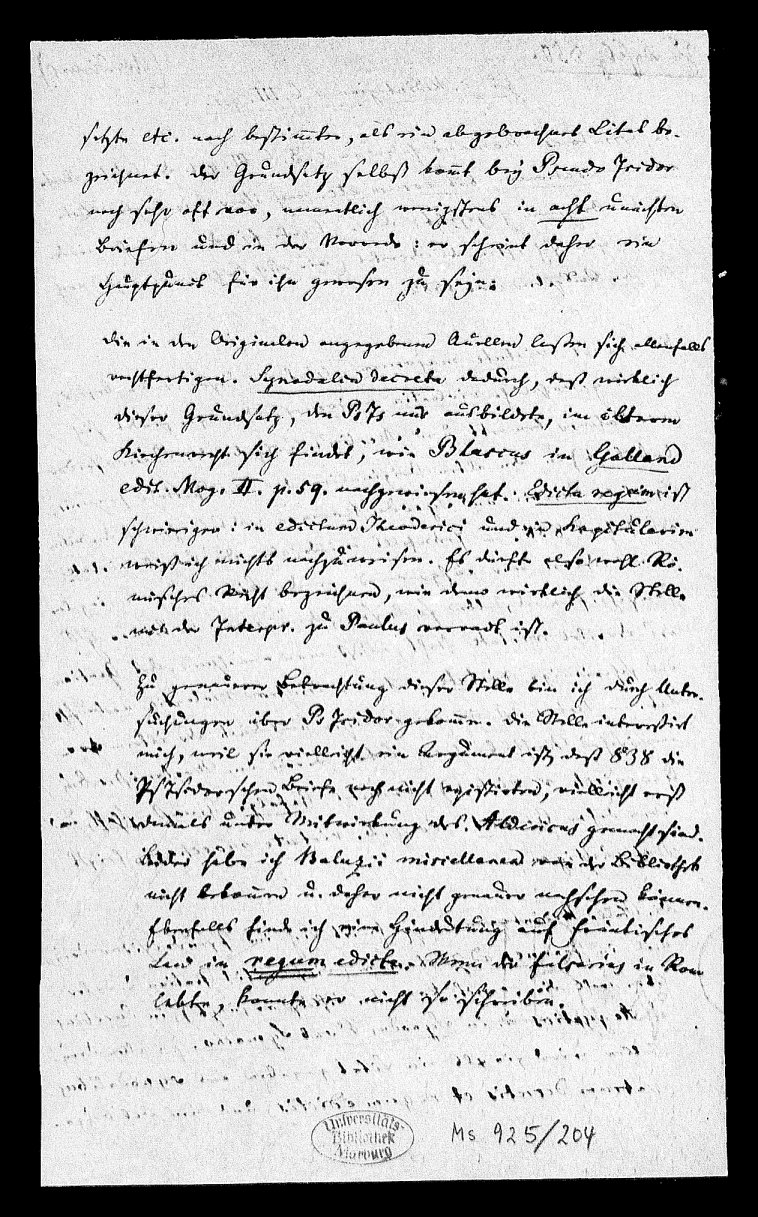 setzte etc. noch bestimmter, als ein abgebrochnes Citat be-
zeichnet. Der Grundsatz selbst komt bey Pseudo Isidor
noch sehr oft vor, namentlich wenigstens in acht unächten
Briefen und in der Vorrede: er scheint daher ein
Hauptpunct für ihn gewesen zu seyn.
Die in den angegebenen Quellen lassen sich allenfalls
rechtfertigen. Synodalia decreta dadurch, daß wirklich
dieser Grundsatz, den PsIs nur ausbildete, im älteren
Kirchenrecht sich findet, wie Blascus in Galland
edit. Mog. II. p. 59. nachgewiesen hat. Edicta regum ist
schwieriger: in edictum Theoderici und in Kapitularien
weiß ich nichts nachzuweisen. Es dürfte also wohl Rö-
misches Recht bezeichnen, wie denn wirklich die Stelle
mit der Interpr. zu Paulus verwandt ist.
Zu genauerer Betrachtung dieser Stelle bin ich durch Unter-
suchungen über Ps Isidor gekomen. Die Stelle interessirt
mich, weil sie vielleicht ein Argument ist, daß 838 die
PsIsidorschen Briefe noch nicht existirten, vielleicht erst
damals unter Mitwirkung des Aldricus gemacht sind.
Leider habe ich Baluzii miscellanea von der Bibliothek
nicht bekomen u. daher nicht genauer nachsehen können.
Ebenfalls finde ich eine Hindeutung auf fränkisches
Land in regum edicta. Wenn der falsarius in Rom
lebte, konnte er nicht so schreiben.
Universitäts-
Bibliothek
Marburg
Ms 925/204